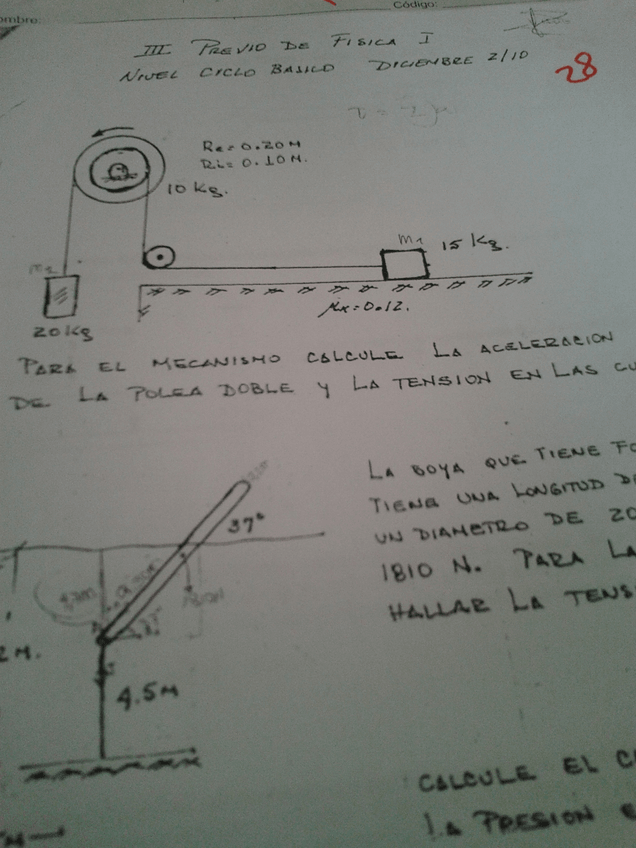 ombre:
Código:
III PREVIO DE FISICA I
NIVEL CICLO BASICO DICIEMBRE 2/10
28
Re = 0.20 M
Ri = 0.10 M.
10 kg.
M1 15 kg.
M2
20 kg
μk = 0.12.
PARA EL MECANISMO CALCULE LA ACELERACION
DE LA POLEA DOBLE Y LA TENSION EN LAS CU
LA BOYA QUE TIENE FO
TIENE UNA LONGITUD DE
UN DIAMETRO DE 20
1810 N. PARA LA
HALLAR LA TENS
37°
2 M.
4.5 M
CALCULE EL C
LA PRESION E